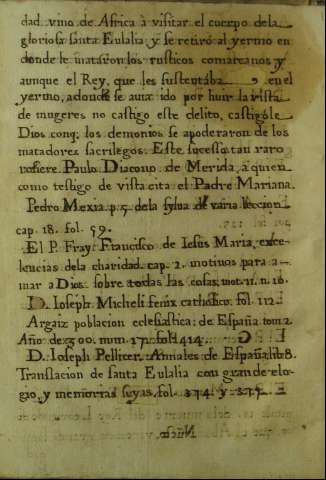 dad, vino de Africa à visitar el cuerpo dela
gloriosa santa Eulalia y se retiró al yermo en
donde le mataron los rusticos comarcanos y
aunque el Rey, que les sustentába, en el
yermo, adonde se auia ido por huir la vista
de mugeres no castigo este delito, castigóle
Dios conq; los demonios se apoderaron de los
matadores sacrilegos. Este sucesso tan raro
refiere Paulo Diacono de Merida, a quien
como testigo de vista cita el Padre Mariana.
Pedro Mexia p. 5. dela sylua de varia leccion
cap. 18. fol. 59.
El P. Fray Francisco de Jesus Maria, exce-
lencias dela charidad. cap. 2. motiuos para a-
mar a Dios sobre todas las cosas, mot. 11. n. 10.
D. Joseph Micheli fenix catholico. fol. 112.
Argaiz poblacion eclesiastica de España tom 2.
Año de 300. num. 171. fol. 414.
D. Joseph Pellicer. Annales de España. lib 8.
Translacion de santa Eulalia con grande elo-
gio, y memorias suyas. fol. 374. y 375.